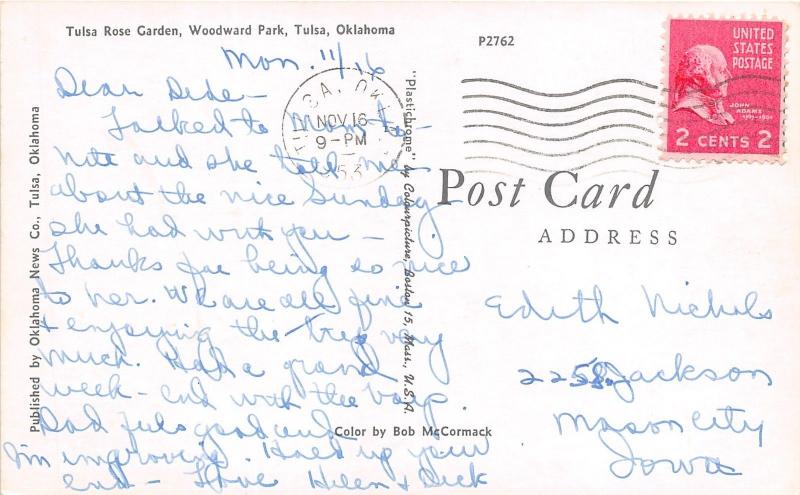 Tulsa Rose Garden, Woodward Park, Tulsa, Oklahoma
P2762
Mon. 11/16
Dear Dede -
Talked to Mom to-
nite and she told me
about the nice Sunday
she had with you -
Thanks for being so nice
to her. We are all fine
& enjoying the trip very
much. Had a grand
week-end with the boys.
Dad feels good and
I'm improving. Hold up your
end - Love Helen & Dick
Published by Oklahoma News Co., Tulsa, Oklahoma
"Plastichrome" by Colourpicture, Boston 15, Mass., U.S.A.
Color by Bob McCormack
TULSA, OKLA.
NOV 16
9-PM
1953
UNITED
STATES
POSTAGE
JOHN
ADAMS
1797-1801
2 CENTS 2
Post Card
ADDRESS
Edith Nichols
Jackson
Mason City
Iowa